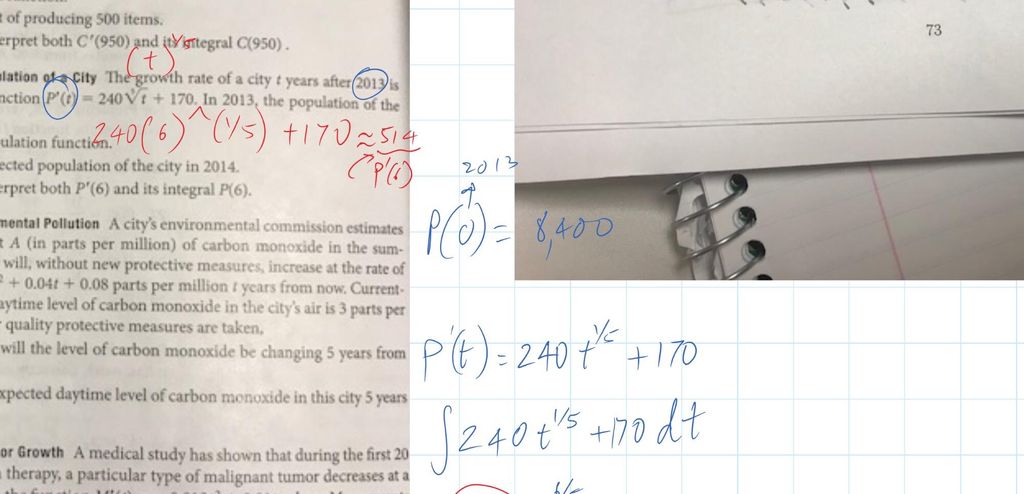 of producing 500 items.
erpret both C'(950) and its integral C(950).
(t)^1/5
ulation of a City The growth rate of a city t years after 2013 is
nction P'(t) = 240 ⁵√t + 170. In 2013, the population of the
240(6)^(1/5) +170 ≈ 514
ulation function.
P'(6)
ected population of the city in 2014.
erpret both P'(6) and its integral P(6).
mental Pollution A city's environmental commission estimates
t A (in parts per million) of carbon monoxide in the sum-
will, without new protective measures, increase at the rate of
+ 0.04t + 0.08 parts per million t years from now. Current-
aytime level of carbon monoxide in the city's air is 3 parts per
quality protective measures are taken,
will the level of carbon monoxide be changing 5 years from
xpected daytime level of carbon monoxide in this city 5 years
or Growth A medical study has shown that during the first 20
therapy, a particular type of malignant tumor decreases at a
73
2013
P(0) = 8,400
P'(t) = 240 t^1/5 + 170
∫ 240 t^1/5 + 170 dt